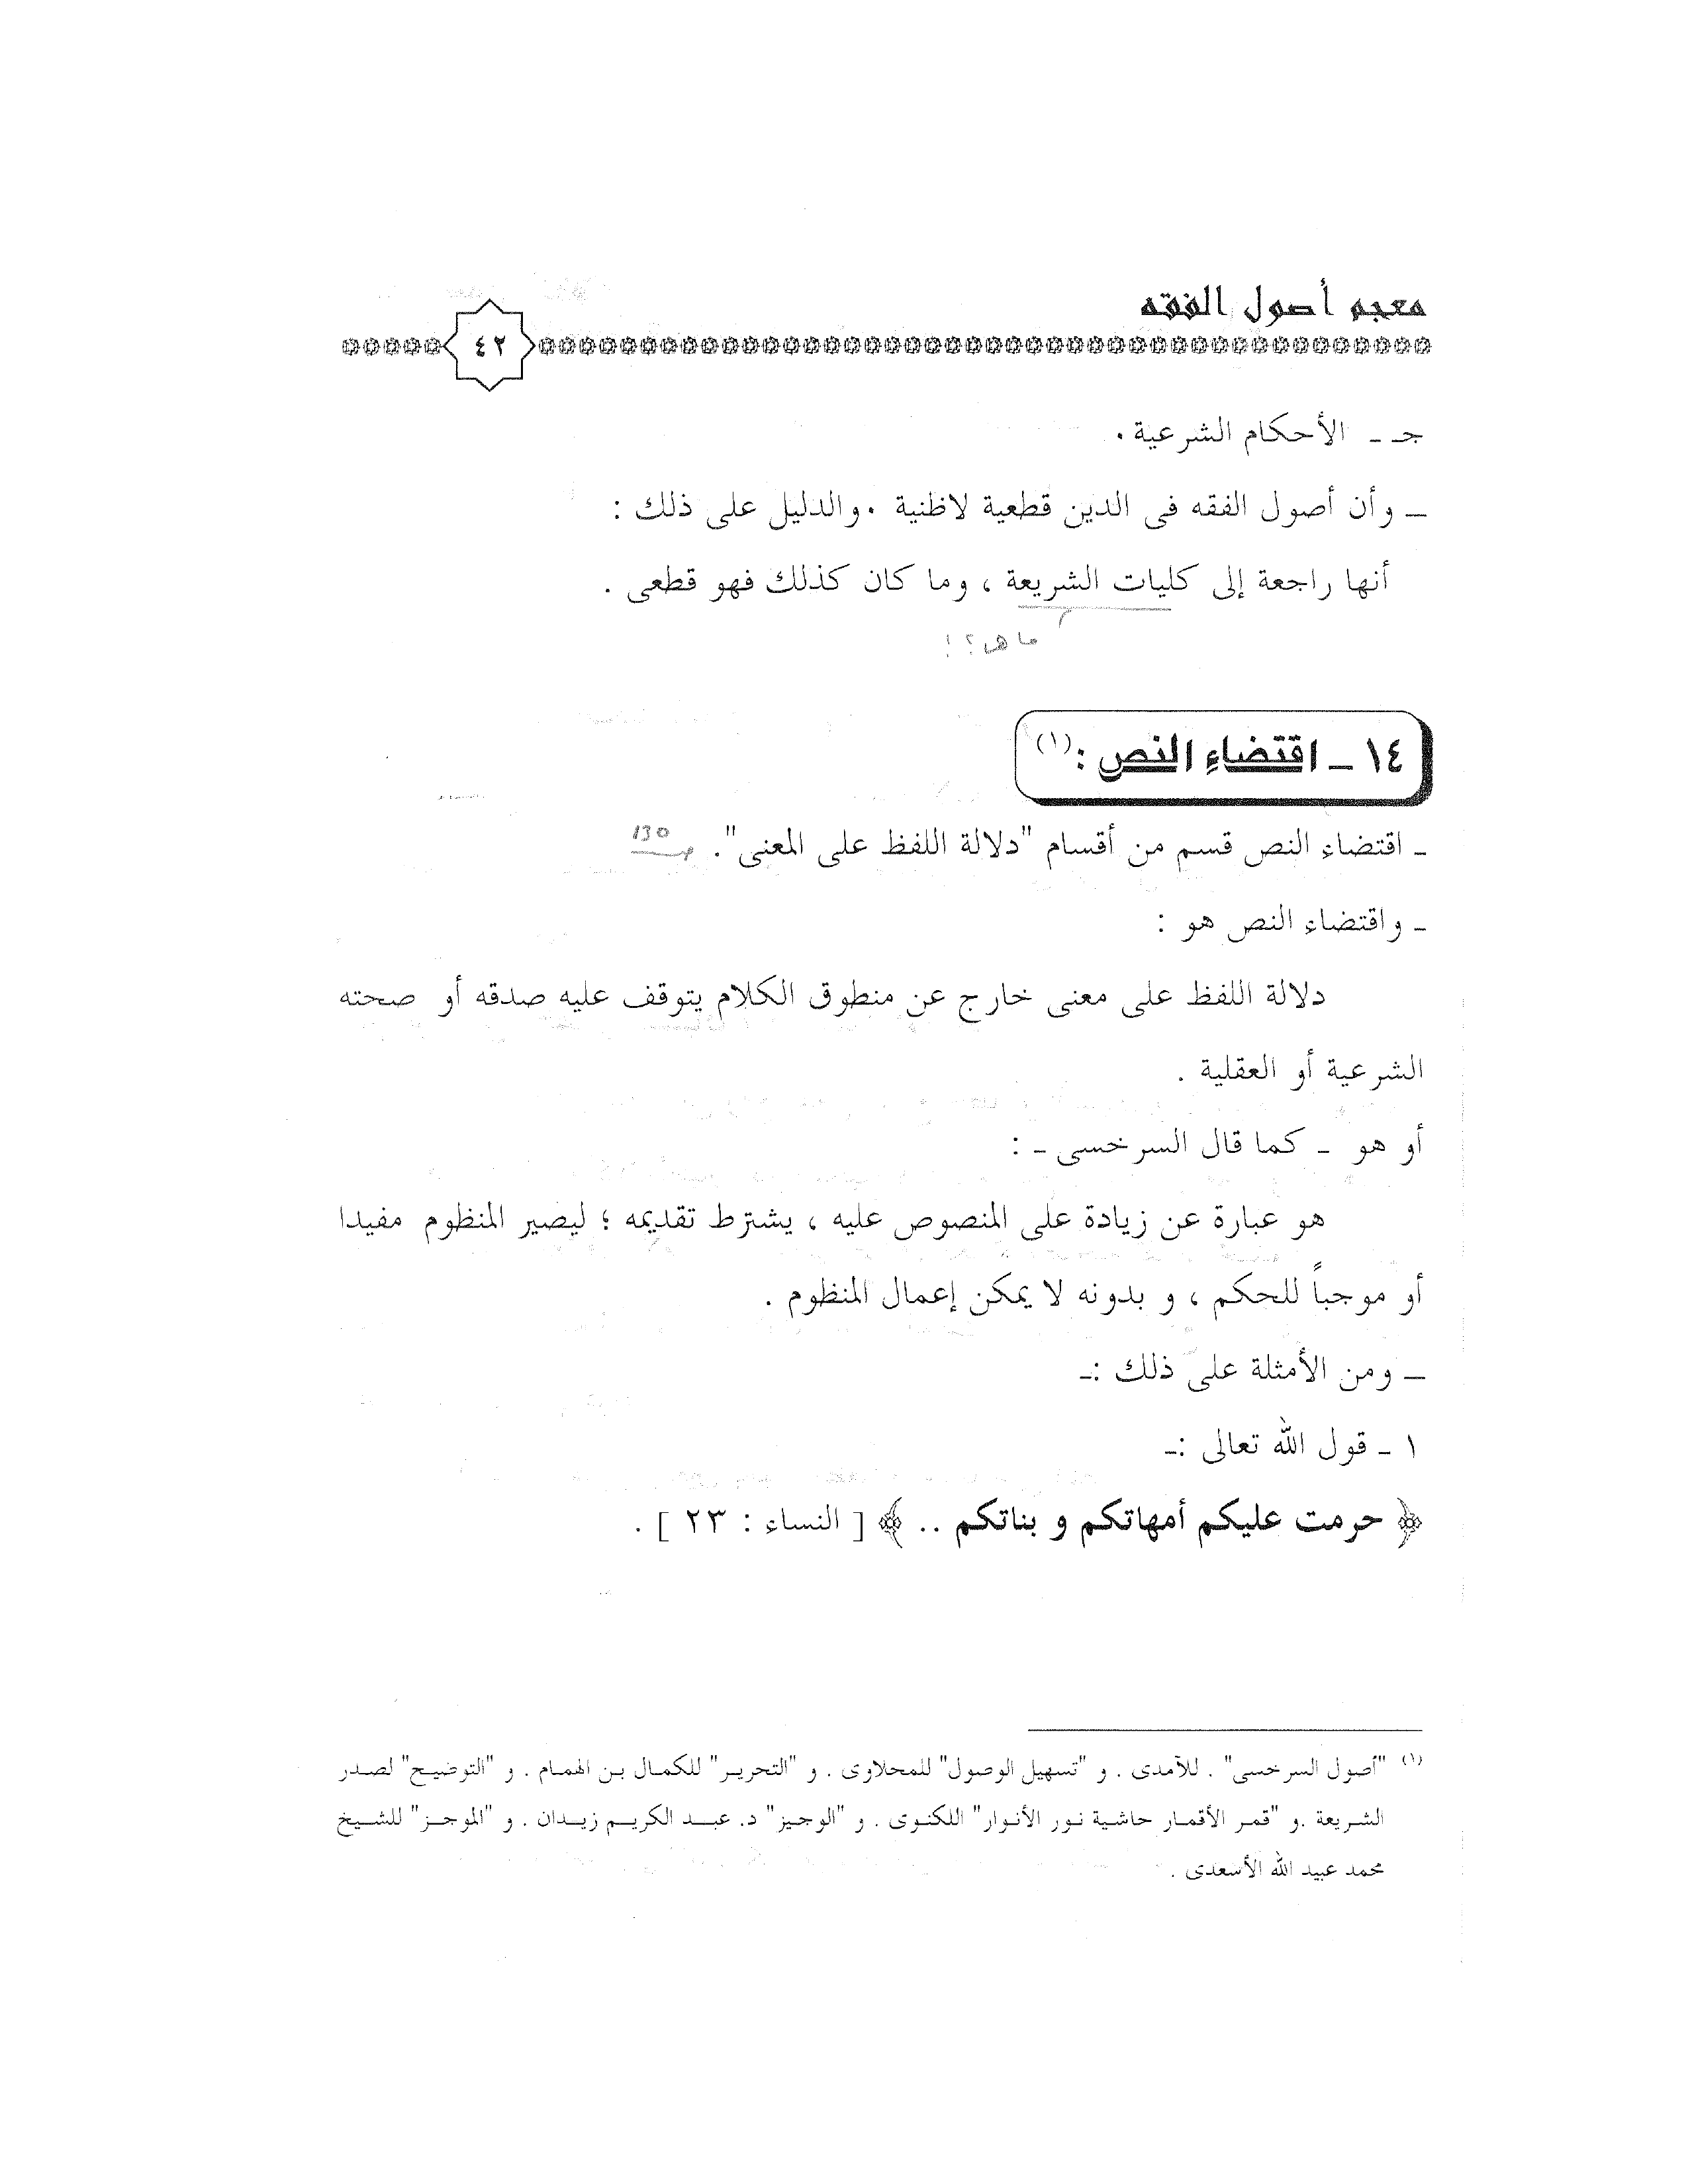 معجم أصول الفقه
٤٢
جـ ـ الأحكام الشرعية ٠
ـ وأن أصول الفقه فى الدين قطعية لاظنية ٠ والدليل على ذلك :
أنها راجعة إلى كليات الشريعة ، وما كان كذلك فهو قطعى .
ما هى؟!
١٤ ـ اقتضاء النص : (١)
ـ اقتضاء النص قسم من أقسام "دلالة اللفظ على المعنى". ص 130
ـ واقتضاء النص هو :
دلالة اللفظ على معنى خارج عن منطوق الكلام يتوقف عليه صدقه أو صحته
الشرعية أو العقلية .
أو هو ـ كما قال السرخسى ـ :
هو عبارة عن زيادة على المنصوص عليه ، يشترط تقديمه ؛ ليصير المنظوم مفيدا
أو موجباً للحكم ، و بدونه لا يمكن إعمال المنظوم .
ـ ومن الأمثلة على ذلك :ـ
١ ـ قول الله تعالى :ـ
﴿ حرمت عليكم أمهاتكم و بناتكم .. ﴾ [ النساء : ٢٣ ] .
(١) "أصول السرخسى" . للآمدى . و "تسهيل الوصول" للمحلاوى . و "التحرير" للكمال بن الهمام . و "التوضيح" لصدر
الشريعة .و "قمر الأقمار حاشية نور الأنوار" اللكنوى . و "الوجيز" د. عبد الكريم زيدان . و "الموجز" للشيخ
محمد عبيد الله الأسعدى .